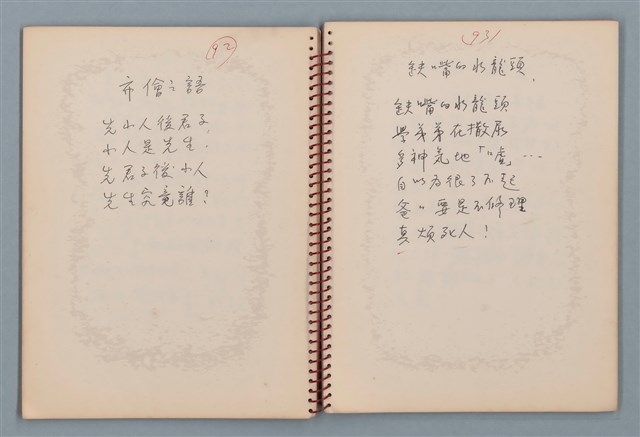 (92)
市儈之語
先小人後君子,
小人是先生.
先君子後小人
先生究竟誰?
(93)
缺嘴的水龍頭.
缺嘴的水龍頭
學弟弟在撒尿
多神氣地「噓」…
自以為很了不起
爸〃要是不修理
真煩死人!